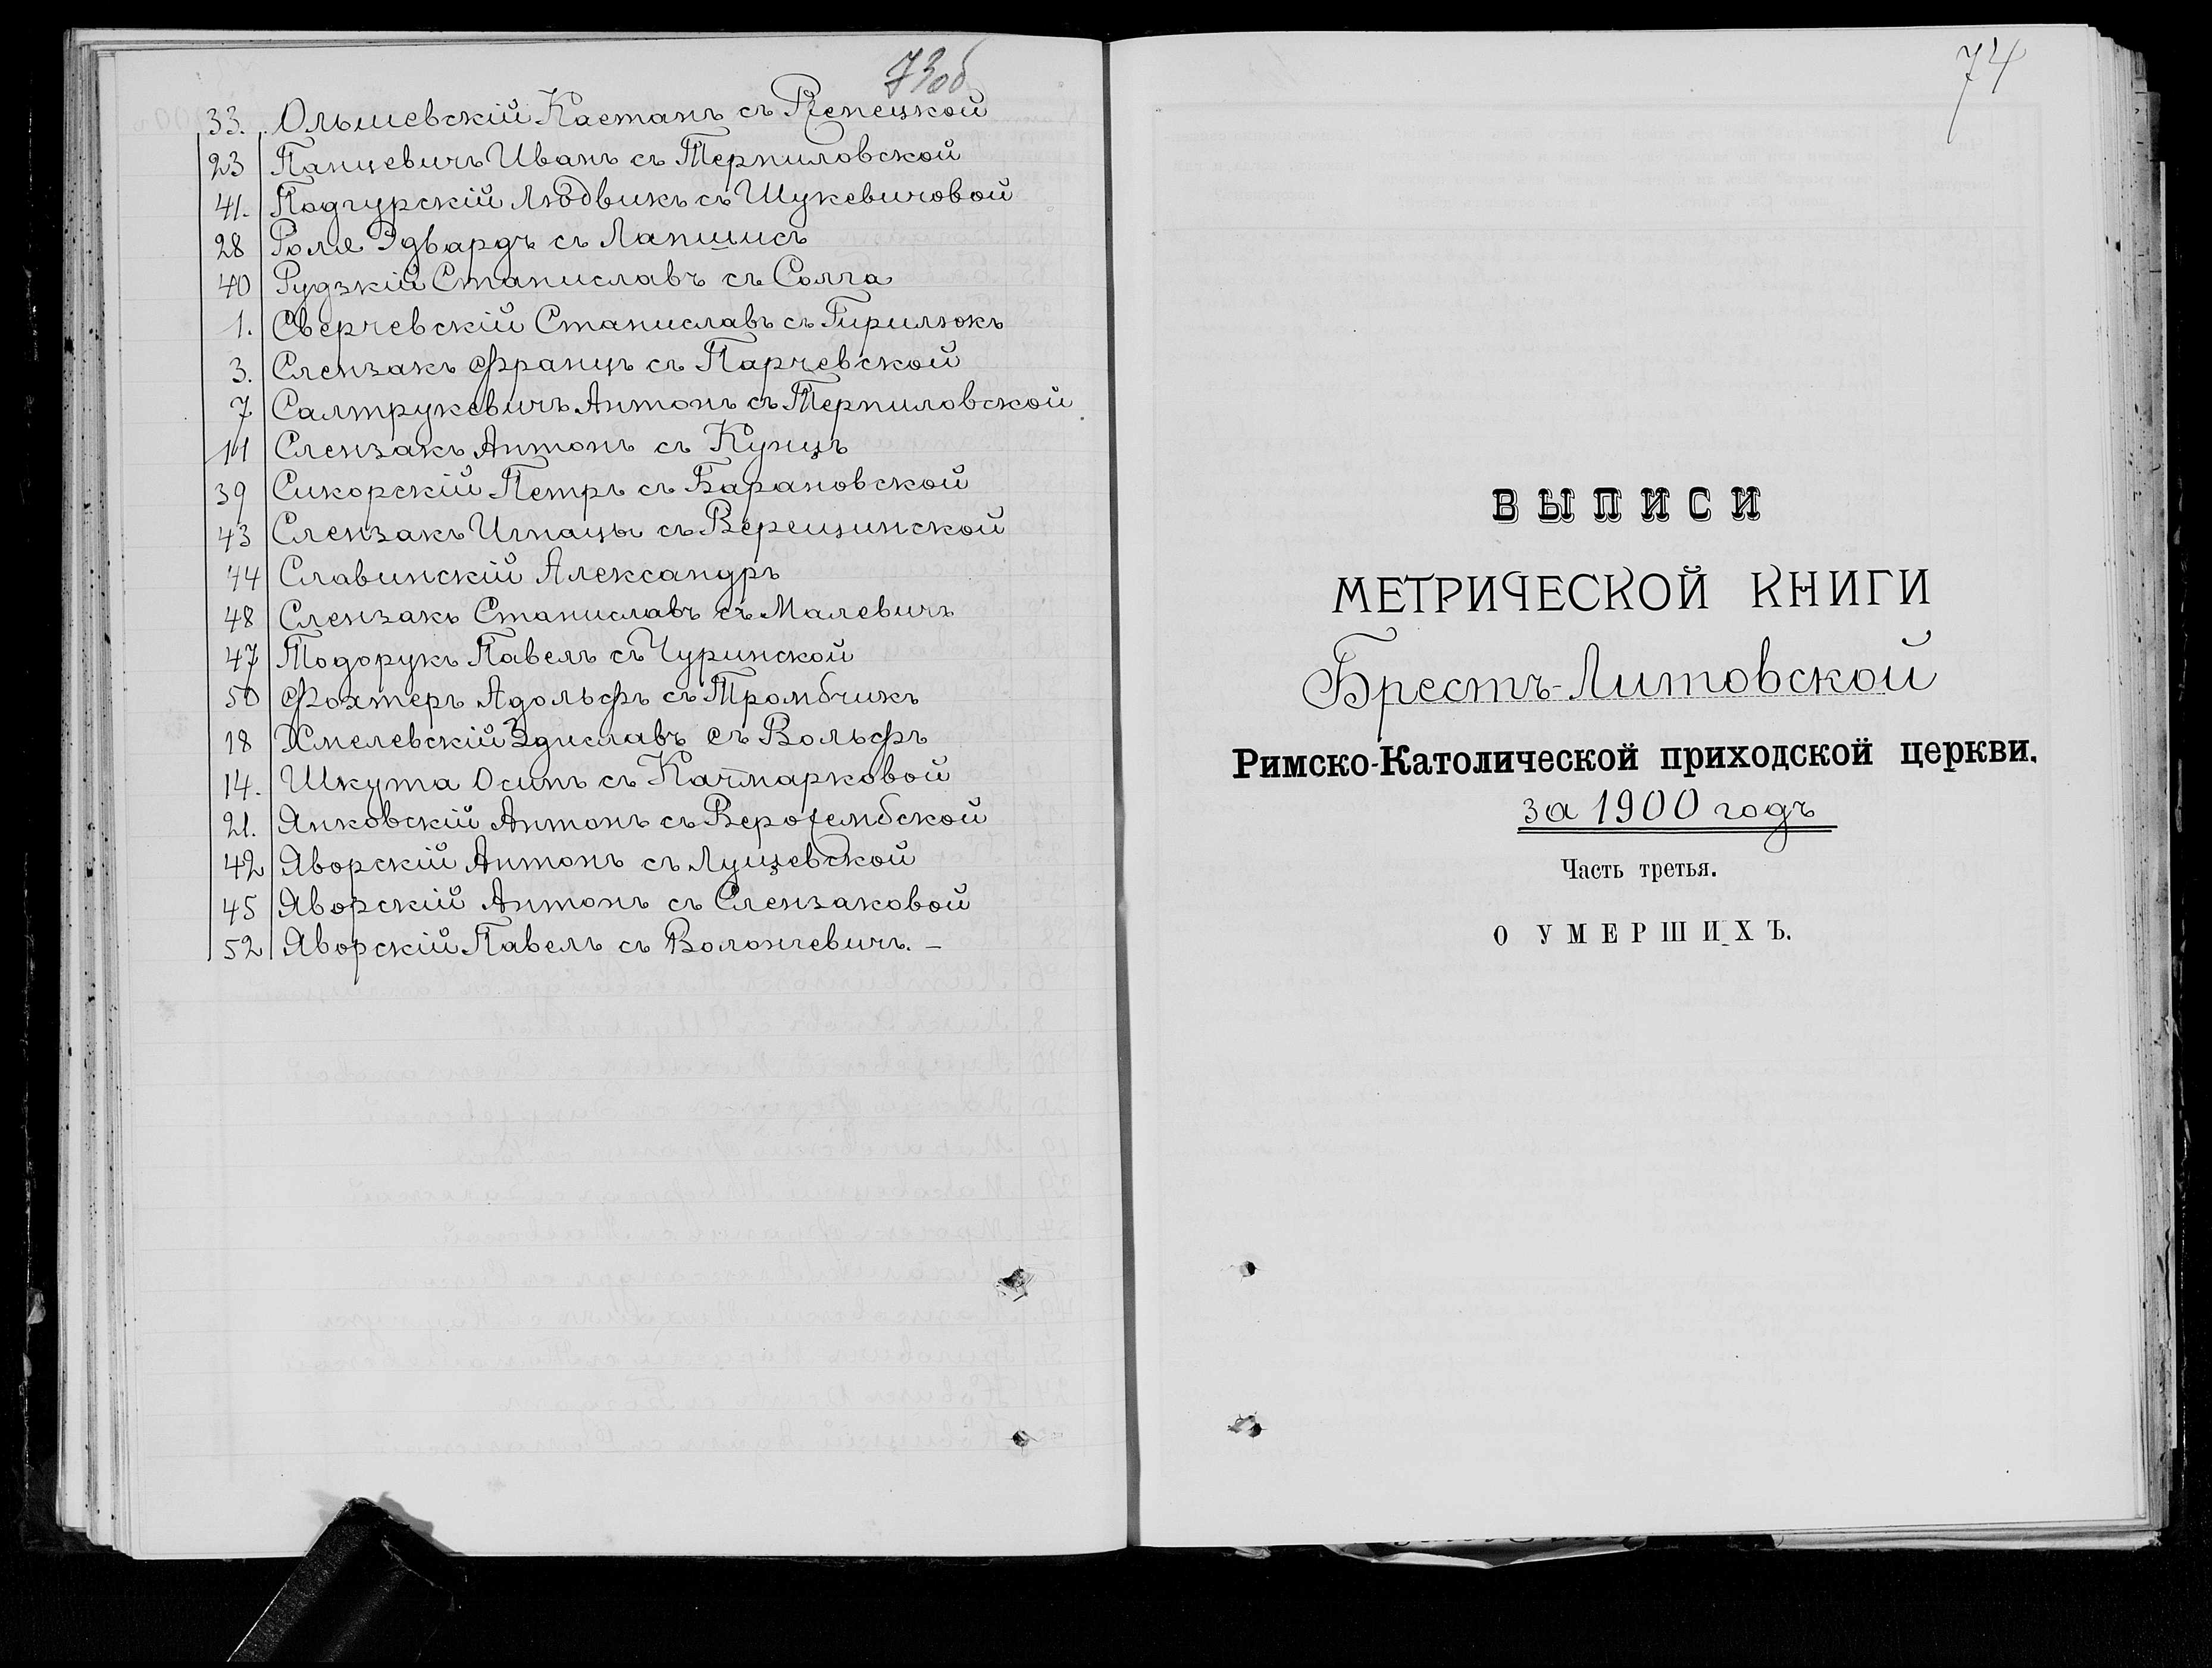 73об
33. Ольшевскій Каетанъ съ Ренецкой
23 Панцевичъ Иванъ съ Терпиловской
41. Подгурскій Людвикъ съ Шукевичовой
28 Роле Эдвардъ съ Лапшисъ
40 Рудзкій Станиславъ съ Солга
1. Сверчевскій Станиславъ съ Гирилюкъ
3. Слензакъ Францъ съ Парчевской
7 Салтрукевичъ Антонъ съ Терпиловской
11 Слензакъ Антонъ съ Кунцъ
39 Сикорскій Петръ съ Барановской
43 Слензакъ Игнацы съ Верещинской
44 Славинскій Александръ
48 Слензакъ Станиславъ съ Малевичъ
47 Тодорукъ Павелъ съ Чуринской
50 Фохтеръ Адольфъ съ Тромбчикъ
18 Хмелевскій Здиславъ съ Вольфъ
14. Шкута Осипъ съ Качмарковой
21. Янковскій Антонъ съ
42 Яворскій Антонъ съ Лущевской
45 Яворскій Антонъ съ Слензаковой
52 Яворскій Павелъ съ Волончевичъ. –
74
ВЫПИСИ
МЕТРИЧЕСКОЙ КНИГИ
Брестъ-Литовской
Римско-Католической приходской церкви.
за 1900 годъ
Часть третья.
О УМЕРШИХЪ.